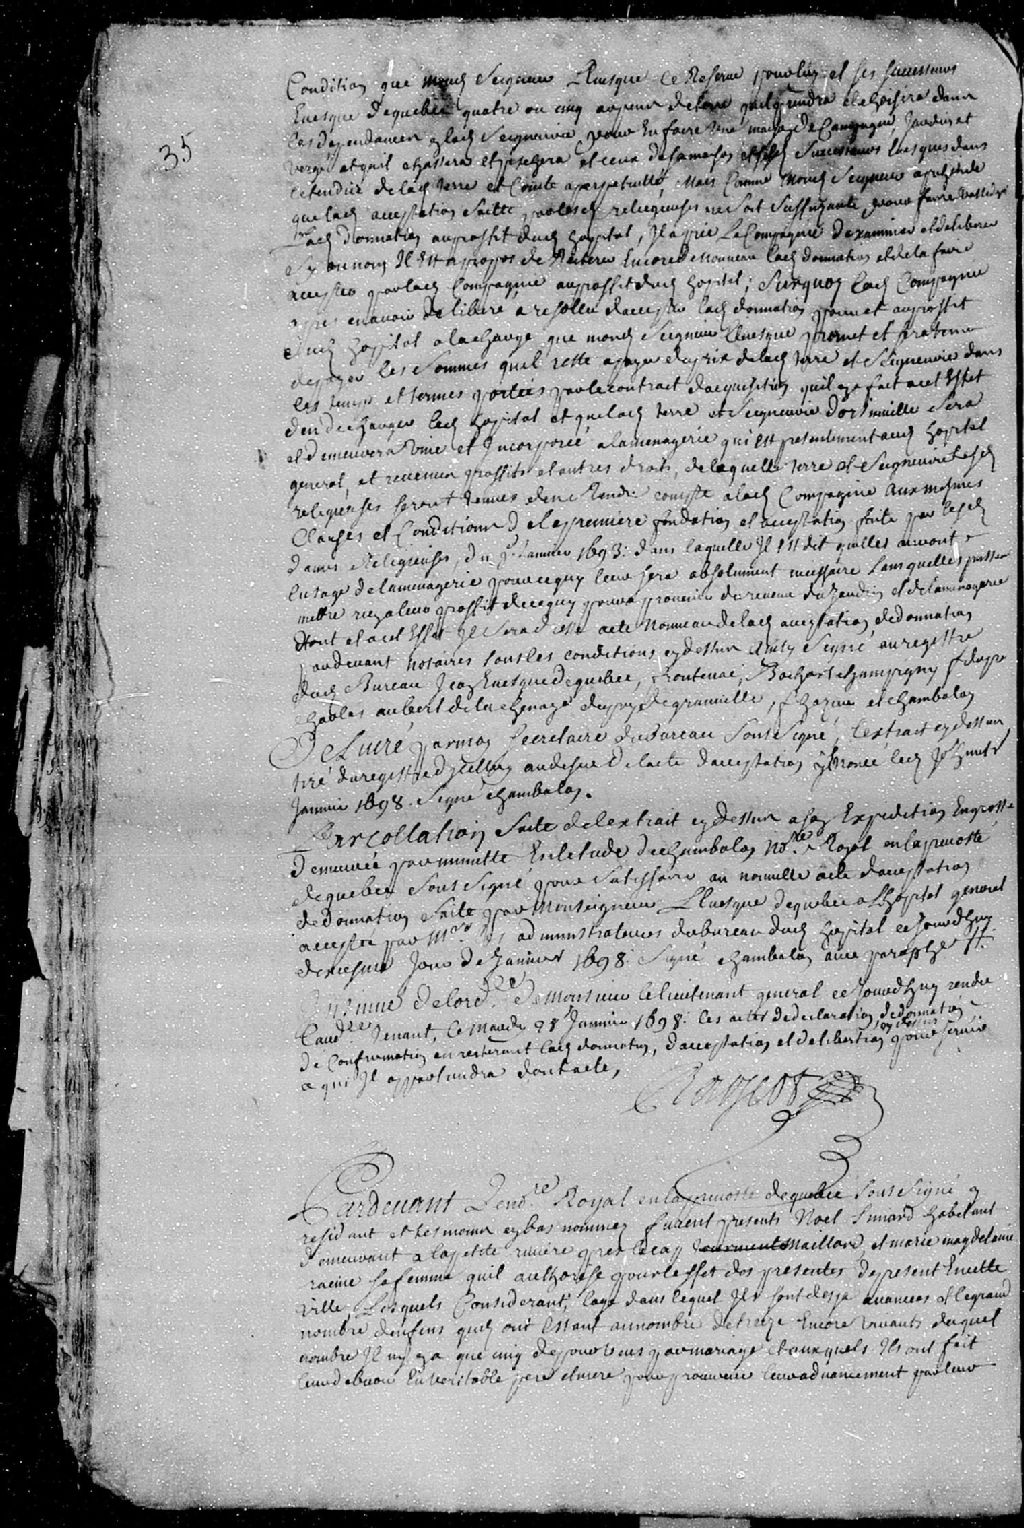 35
Condition que mond Seigneur LEuesque Ce Reserue pour luy et ses successeurs
Euesque dequebec quatre ou cinq arpens deterre quil prendra et choisira dans
Les dependances de lad Seigneurie pour En faire Une maison de Campagne Jardin et
verger et quil chassera et peschera et ceux de sa maison et ses Successeurs Euesques dans
letendue de lad terre et Comté aperpetuité, Mais Comme mond Seigneur
que lad acceptation faitte par lesd religieuses ne soit Suffizante pour faire
lad donnation au proffit dud hopital, Il a prié La Compagnie dexaminer et delibere
sy ou non Il Est a propos de Reiterer Encore de Nouueau lad donnation et de la faire
accepter par lad Compagnie au proffit dud hopital; Surquoy lad Compagnie
apres en auoir delibere, a resollu daccepter lad donnation pour et au proffit
dud hopital a la charge que mond Seigneur LEuesque promet et
de payer les Sommes quil reste a payer du prix de lad terre et Seigneurie dans
les temps et termes portées par le contract dacquisition quil en a fait a cet Effet
den decharger led hopital et que lad terre et Seigneurie dorsinuille Sera
et demeurera Unie et Incorporée a la menagerie qui Est presentement aud hopital
general, et reuenus proffits et autres droits, de laquelle terre et Seigneurie lesd
religieuses seront tenues den Rendre compte a lad Compagnie aux mesmes
Clauses et Conditions de la premiere fondation et acceptation faite par lesd
dames Religieuses, du Januier 1693: dans laquelle Il Est dit quelles auront
lusage de la menagerie pour ce qui leur sera absolument necessaire sans quelles puissent
mettre rien a leur proffit de ce qui pourra prouenir du reuenu du Jardin et de la menagerie
dont et a cet Effet Il Sera dressé acte Nouueau de lad acceptation de donnation
pardeuant notaires sous les conditions cy dessus Ainsy Signé au registre
dud Bureau Jean Euesque de quebec, frontenac, Bochart champigny f dupre
Charles aubert de la chenaye dupuy de granuille, f hazeur et chambalon
Deliuré par moy Secretaire du bureau Sous Signé, lextrait cy dessus
tiré du registre diceluy au desir de lacte dacceptation
Januier 1698. Signé chambalon.
Par collation faite de lextrait cy dessus a son Expedition En grosse
demeurée par minutte En letude de chambalon no.re Royal en la preuosté
de quebec Sous Signé pour Satisfaire au nouuelle acte dacceptation
de donnation faite par Monseigneur LEuesque de quebec a Lhopital general
acceptée par Mrs les administrateurs du bureau dud hopital ce Jourdhuy
de mesme Jour de Januier 1698. Signé chambalon auec paraphe
de lord.ce de Monsieur le lieutenant general ce Jourdhuy rendu
Laud.ce tenant, Ce mardy 28 Januier 1698: les actes de declaration de donnation
de Confirmation en reiterant lad donnation, dacceptation et deliberation pour seruir
a qui Il appartiendra dont acte,
Rageot
Pardeuant Le no.re Royal en la preuosté de quebec sous signé y
residant et tesmoins cy bas nommez furent presents Noel Simard habitant
demeurant a la petite riuiere pres le cap tourmente Maillard, et marie magdelaine
racine sa femme quil authorise pour leffet des presentes de present En cette
ville, Lesquels Considerant, lage dans lequel Ils sont desja auancés et le grand
nombre denfans quils ont Estant au nombre de treize Encore viuants duquel
nombre Il ny en a que cinq de pourueus par mariage et auxquels Ils ont fait
leur debuoir En veritable pere et mere pour prouuenir leur aduancement par leur